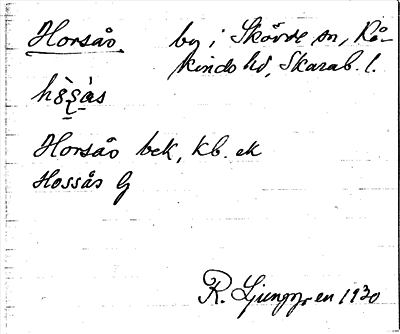 Horsås by i Skövde sn, Kå-
kinds hd, Skarab. l.
Horsås bek, kb. ek
Hossås G
R. Ljunggren 1930